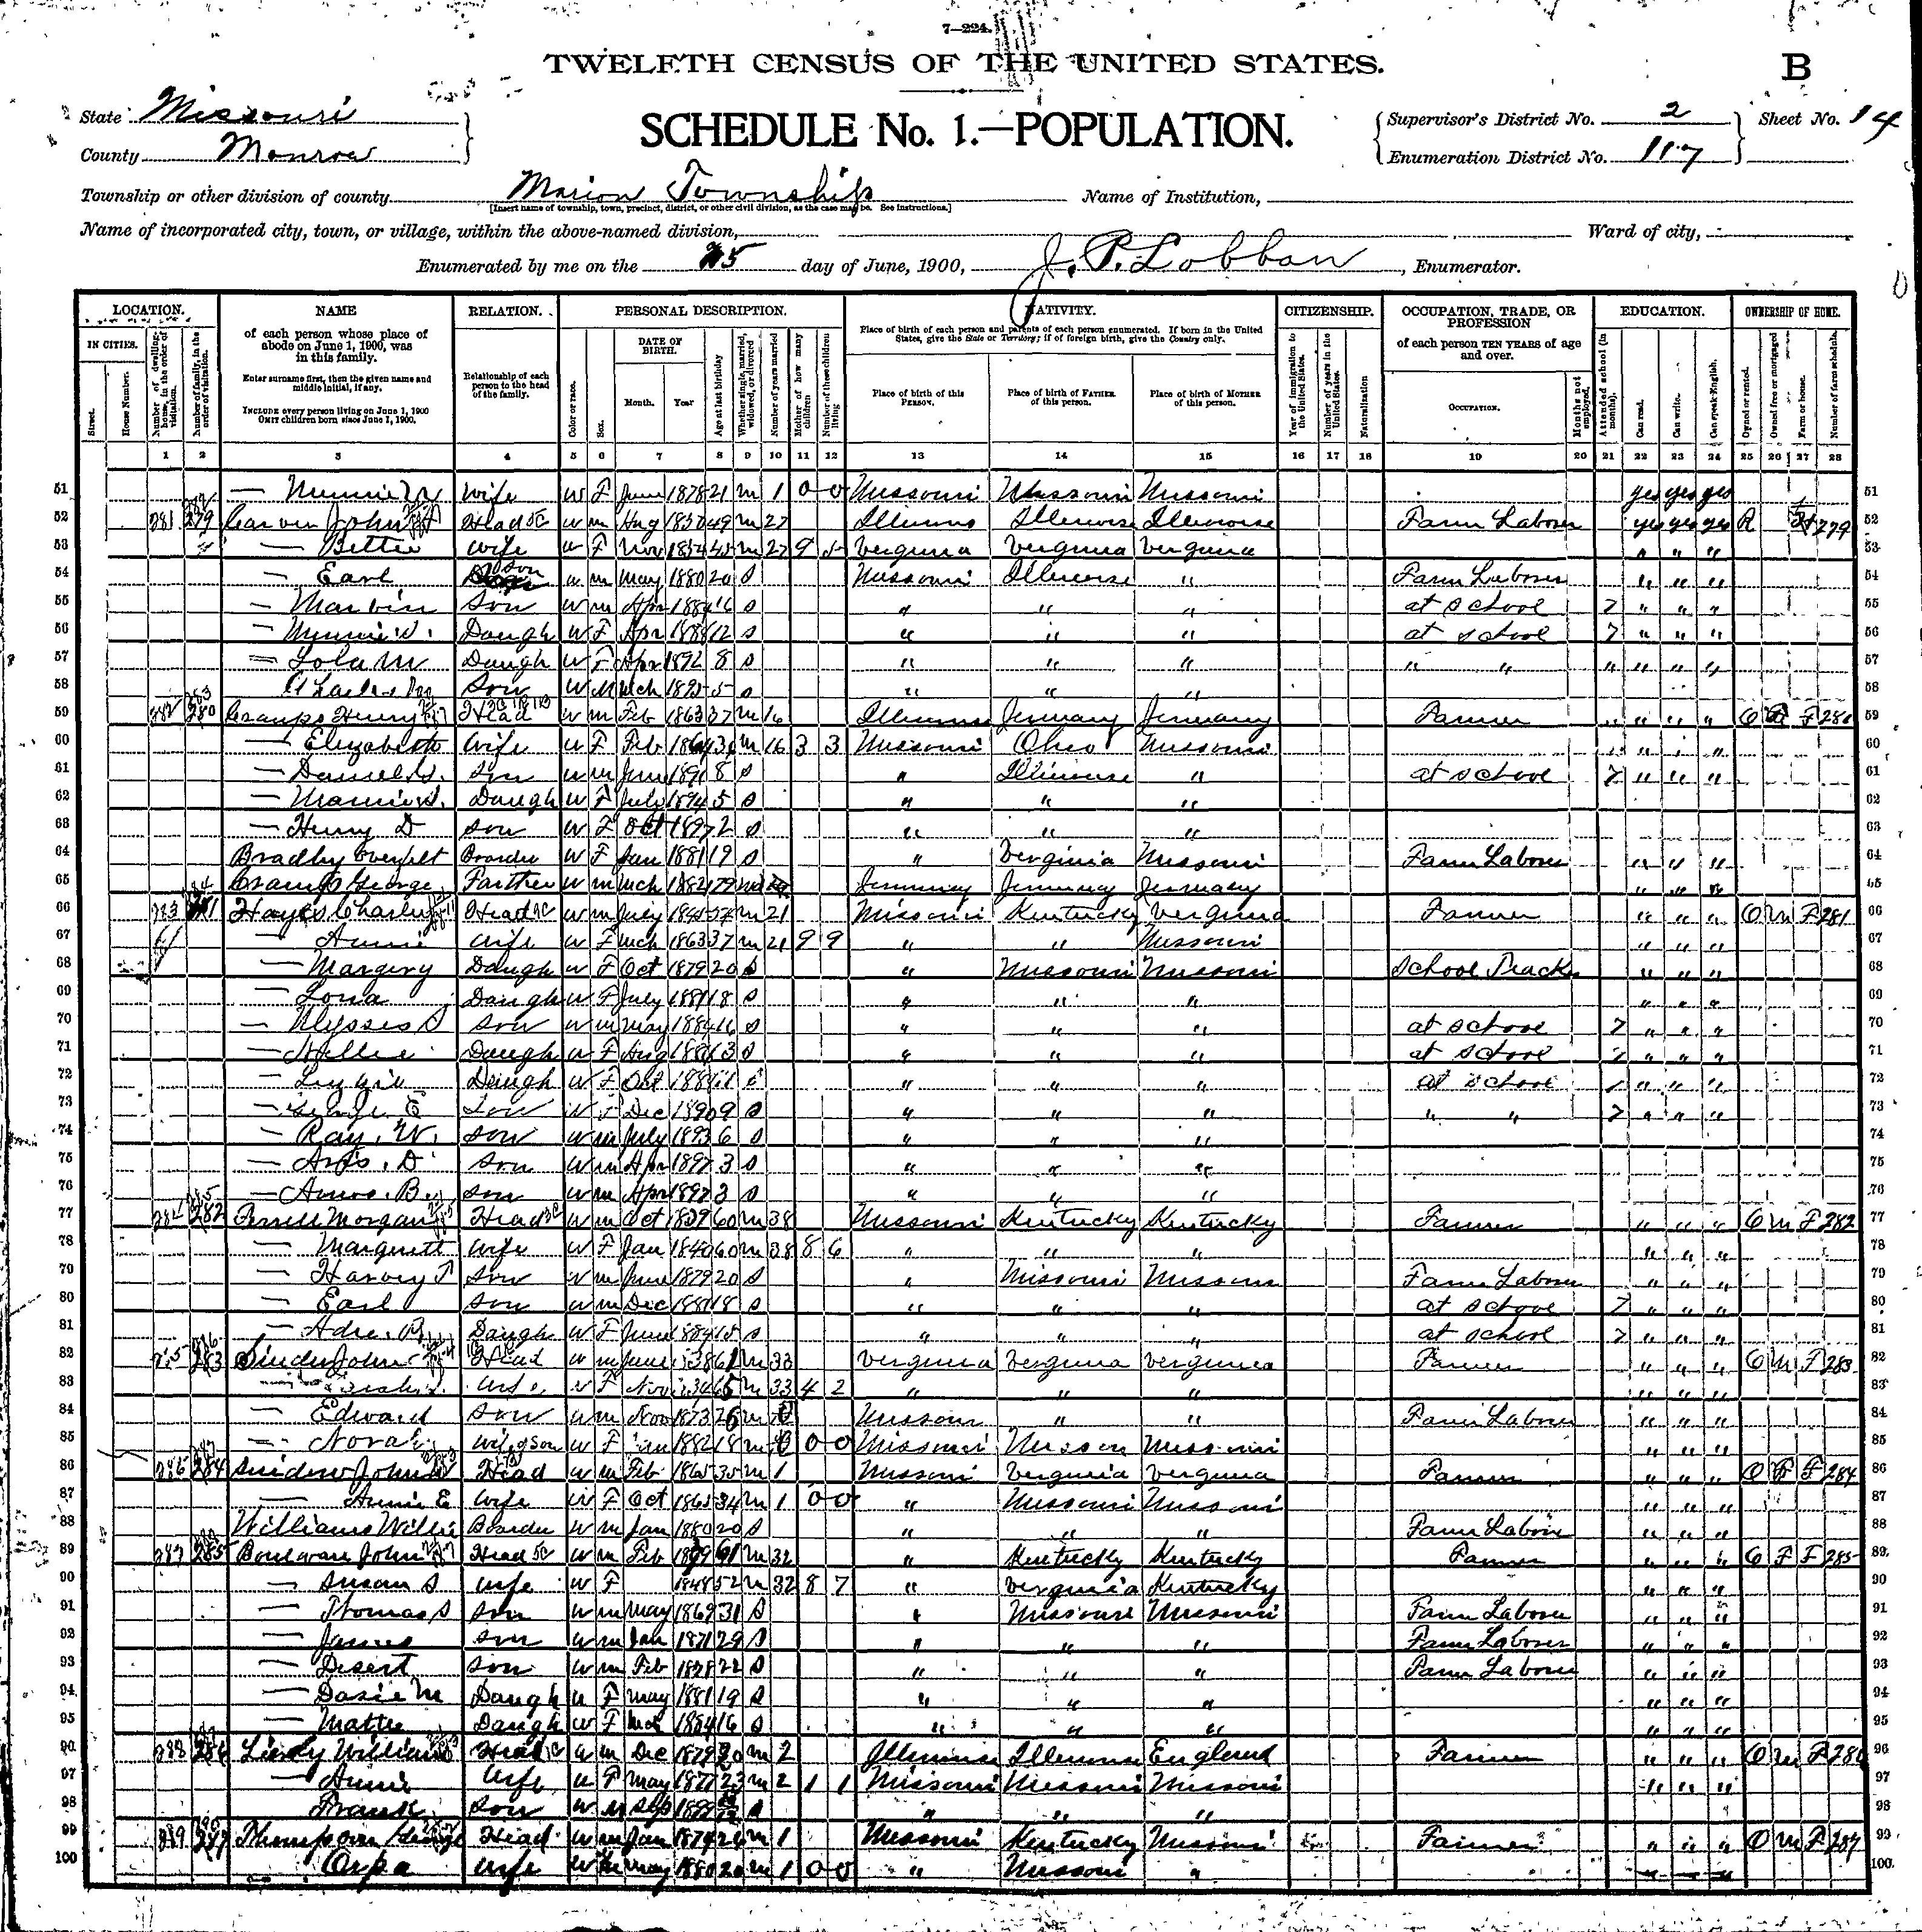 7—224.
TWELFTH CENSUS OF THE UNITED STATES.
B
State Missouri
County Monroe
SCHEDULE No. 1.—POPULATION.
Supervisor's District No. 2
Enumeration District No. 117
Sheet No. 14
Township or other division of county Marion Township
[Insert name of township, town, precinct, district, or other civil division, as the case may be. See instructions.]
Name of Institution,
Name of incorporated city, town, or village, within the above-named division,
Ward of city,
Enumerated by me on the 25 day of June, 1900, J. P. Lobban, Enumerator.
LOCATION. NAME RELATION. PERSONAL DESCRIPTION. NATIVITY. CITIZENSHIP. OCCUPATION, TRADE, OR PROFESSION EDUCATION. OWNERSHIP OF HOME.
IN CITIES.
Street.
House Number.
Number of dwelling-house, in the order of visitation.
Number of family, in the order of visitation.
of each person whose place of abode on June 1, 1900, was in this family.
Enter surname first, then the given name and middle initial, if any.
INCLUDE every person living on June 1, 1900
OMIT children born since June 1, 1900.
Relationship of each person to the head of the family.
Color or race.
Sex.
DATE OF BIRTH.
Month. Year
Age at last birthday
Whether single, married, widowed, or divorced
Number of years married
Mother of how many children
Number of these children living
Place of birth of each person and parents of each person enumerated. If born in the United States, give the State or Territory; if of foreign birth, give the Country only.
Place of birth of this PERSON.
Place of birth of FATHER of this person.
Place of birth of MOTHER of this person.
Year of immigration to the United States.
Number of years in the United States.
Naturalization
of each person TEN YEARS of age and over.
OCCUPATION.
Months not employed.
Attended school (in months).
Can read.
Can write.
Can speak English.
Owned or rented.
Owned free or mortgaged
Farm or house.
Number of farm schedule.
1 2 3 4 5 6 7 8 9 10 11 12 13 14 15 16 17 18 19 20 21 22 23 24 25 26 27 28
51 — wife W F June 1878 21 m 1 0 0 Missouri Missouri Missouri yes yes yes 51
52 281 279 John Head W m Aug 1850 49 m 27 Illinois Illinoise Illinoise Farm Labore yes yes yes R 279 52
53 — Bettie wife W F Nov 1854 45 m 27 9 5 Verginia Verginia Verginia " " " 53
54 — Earl son W m May 1880 20 S Missouri Illinoise " Farm Labore " " " 54
55 — Marvin Son W m Apr 1884 16 S " " " at school 7 " " " 55
56 — Daugh W F Apr 1888 12 S " " " at school 7 " " " 56
57 — Lola M Daugh W F Apr 1892 8 S " " " " " " " " " 57
58 Son W M Mch 1895 5 S " " " 58
59 282 280 Henry Head W m Feb 1863 37 m 16 Illinois Jermany Jermany Farmer " " " O F F 280 59
60 — Elizabeth Wife W F Feb 1864 m 16 3 3 Missouri Ohio Missouri " " " 60
61 — Daniel Son W m June 1891 8 S " Illinoise " at school 7 " " " 61
62 — Daugh W F July 1894 5 S " " " 62
63 — Henry D Son W F Oct 1897 2 S " " " 63
64 Bradley Boarder W F Jan 1881 19 S " Verginia Missouri Farm Labore " " " 64
65 George Farther W m Mch Jermany Jermany Jermany " " " 65
66 283 281 Hayes Charley Head W m July m 21 Missouri Kentucky Verginia Farmer " " " O m F 281 66
67 — Annie Wife W F Mch 1863 37 m 21 9 9 " " Missouri " " " 67
68 — Margery Daugh W F Oct 1879 20 S " Missouri Missouri School Teacher " " " 68
69 — Lona Daugh W F July 1881 18 S " " " " " " 69
70 — Ulysses S Son W m May 1884 16 S " " " at school 7 " " " 70
71 — Nellie Daugh W F Aug 1886 13 S " " " at school 7 " " " 71
72 — Daugh W F Oct 1888 11 S " " " at school 7 " " " 72
73 — E Son W F Dec 1890 9 S " " " " " 7 " " " 73
74 — Ray. W. Son W m July 1893 6 S " " " 74
75 — D Son W m Apr 1897 3 S " " " 75
76 — Amos. B. Son W m Apr 1897 3 S " " " 76
77 284 282 Morgan Head W m Oct 1839 60 m 38 Missouri Kentucky Kentucky Farmer " " " O m F 282 77
78 — Margarett Wife W F Jan 1840 60 m 38 8 6 " " " " " " 78
79 — Harvey T Son W m June 1879 20 S " Missouri Missouri Farm Labore " " " 79
80 — Earl Son W m Dec 1881 18 S " " " at school 7 " " " 80
81 — Daugh W F June 1884 15 S " " " at school 7 " " " 81
82 285 283 John Head W m June 1838 61 m 33 Verginia Verginia Verginia Farmer " " " O m F 283 82
83 — W F Nov m 33 4 2 " " " " " " 83
84 — Edward Son W m Nov 1873 26 m Missouri " " Farm Labore " " " 84
85 — Nora W F Jan 1882 18 m 0 0 0 Missouri Missouri Missouri " " " 85
86 286 284 John Head W m Feb 1865 35 m 1 Missouri Verginia Verginia Farmer " " " O F F 284 86
87 — Annie E Wife W F Oct 1865 34 m 1 0 0 " Missouri Missouri " " " 87
88 Williams Willie Boarder W m Jan 1880 20 S " " " Farm Labore " " " 88
89 287 285 Boulware John Head W m Feb 1839 61 m 32 " Kentucky Kentucky Farmer " " " O F F 285 89
90 — Susan S Wife W F 1848 52 m 32 8 7 " Verginia Kentucky " " " 90
91 — Thomas S Son W m May 1869 31 S " Missouri Missouri Farm Labore " " " 91
92 — James Son W m Jan 1871 29 S " " " Farm Labore " " " 92
93 — Desert Son W m Feb 1878 22 S " " " Farm Labore " " " 93
94 — Dasie M Daugh W F May 1881 19 S " " " " " " 94
95 — Mattie Daugh W F 1884 16 S " " " " " " 95
96 288 286 William Head W m Dec m 2 Illinoise Illinoise Englend Farmer " " " O m F 286 96
97 — Annie Wife W F May 1877 23 m 2 1 1 Missouri Missouri Missouri " " " 97
98 Frank Son W m Sep 1899 S " " " 98
99 289 287 Thompson Head W m Jan 1874 26 m 1 Missouri Kentucky Missouri Farmer " " " O m F 287 99
100 Orpa Wife W May 1880 20 m 1 0 0 " Missouri " " " " 100